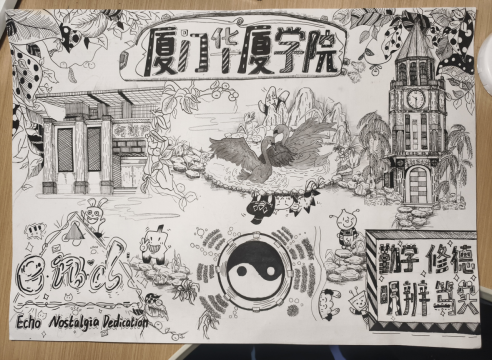 厦门华厦学院
勤学 修德
明辨 笃实
Echo Nostalgia Dedication